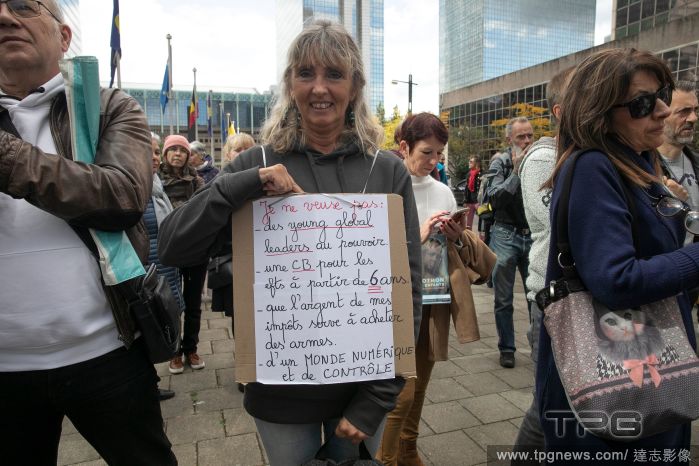 Je ne veux pas:
- des young global
leaders au pouvoir
- une CB pour les
efts à partir de 6 ans.
- que l'argent de mes
impôts serve à acheter
des armes.
- d'un MONDE NUMÉRIQUE
et de CONTRÔLE
TPG
www.tpgnews.com/達志影像